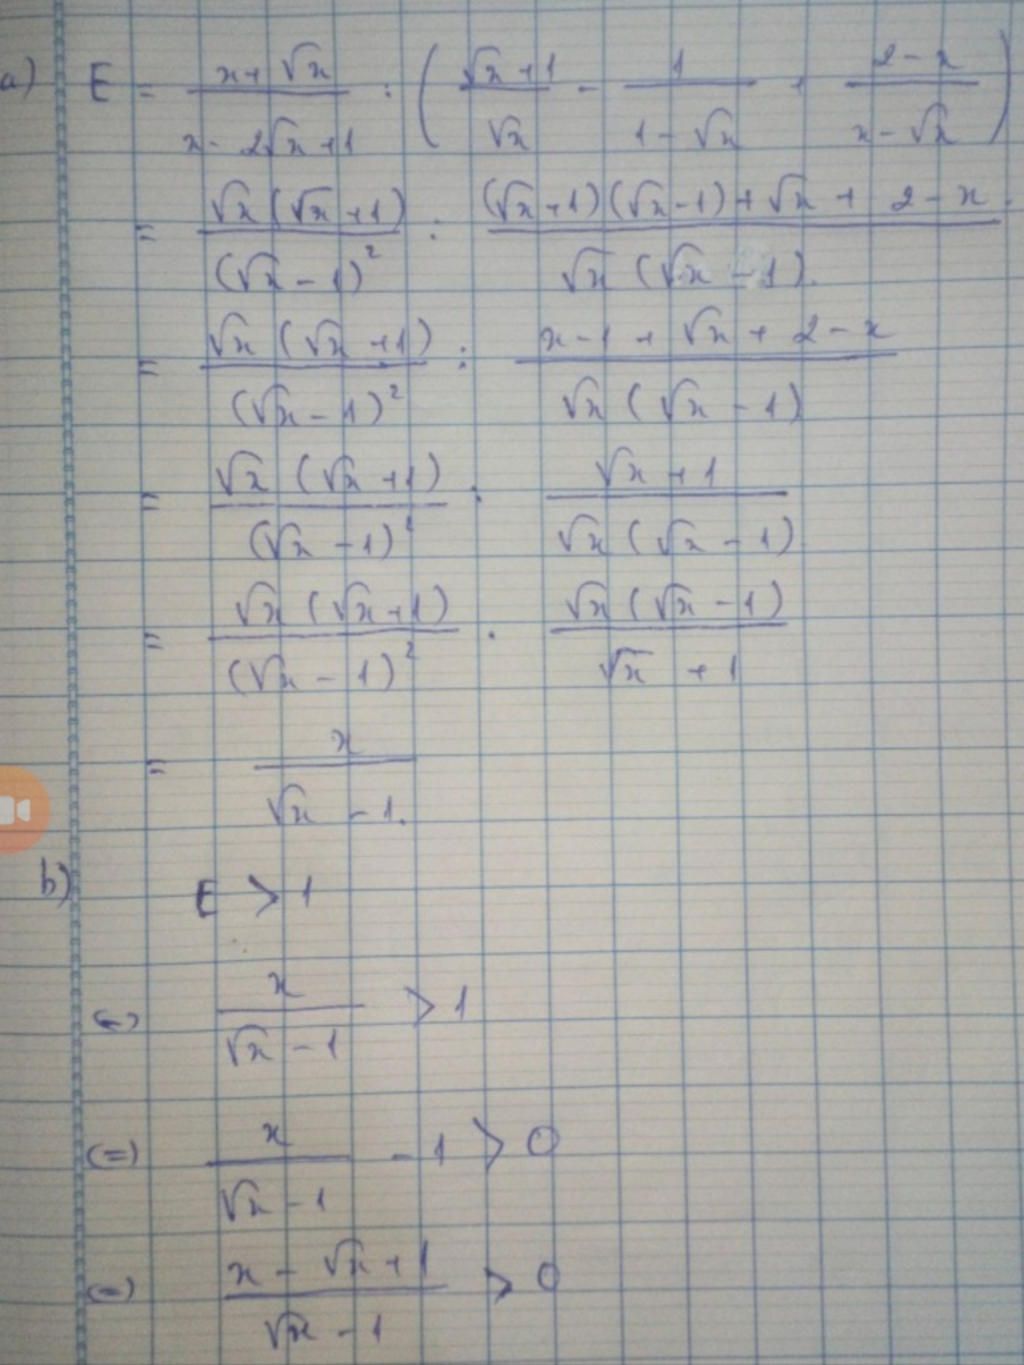 a) E = (x + √x)/(x - 2√x + 1) : ((√x + 1)/√x - 1/(1 - √x) + (2 - x)/(x - √x))
= √x(√x + 1)/(√x - 1)² : ((√x + 1)(√x - 1) + √x + 2 - x)/(√x(√x - 1))
= √x(√x + 1)/(√x - 1)² : (x - 1 + √x + 2 - x)/(√x(√x - 1))
= √x(√x + 1)/(√x - 1)² : (√x + 1)/(√x(√x - 1))
= √x(√x + 1)/(√x - 1)² . √x(√x - 1)/(√x + 1)
= x/(√x - 1).
b) E > 1
(=) x/(√x - 1) > 1
(=) x/(√x - 1) - 1 > 0
(=) (x - √x + 1)/(√x - 1) > 0